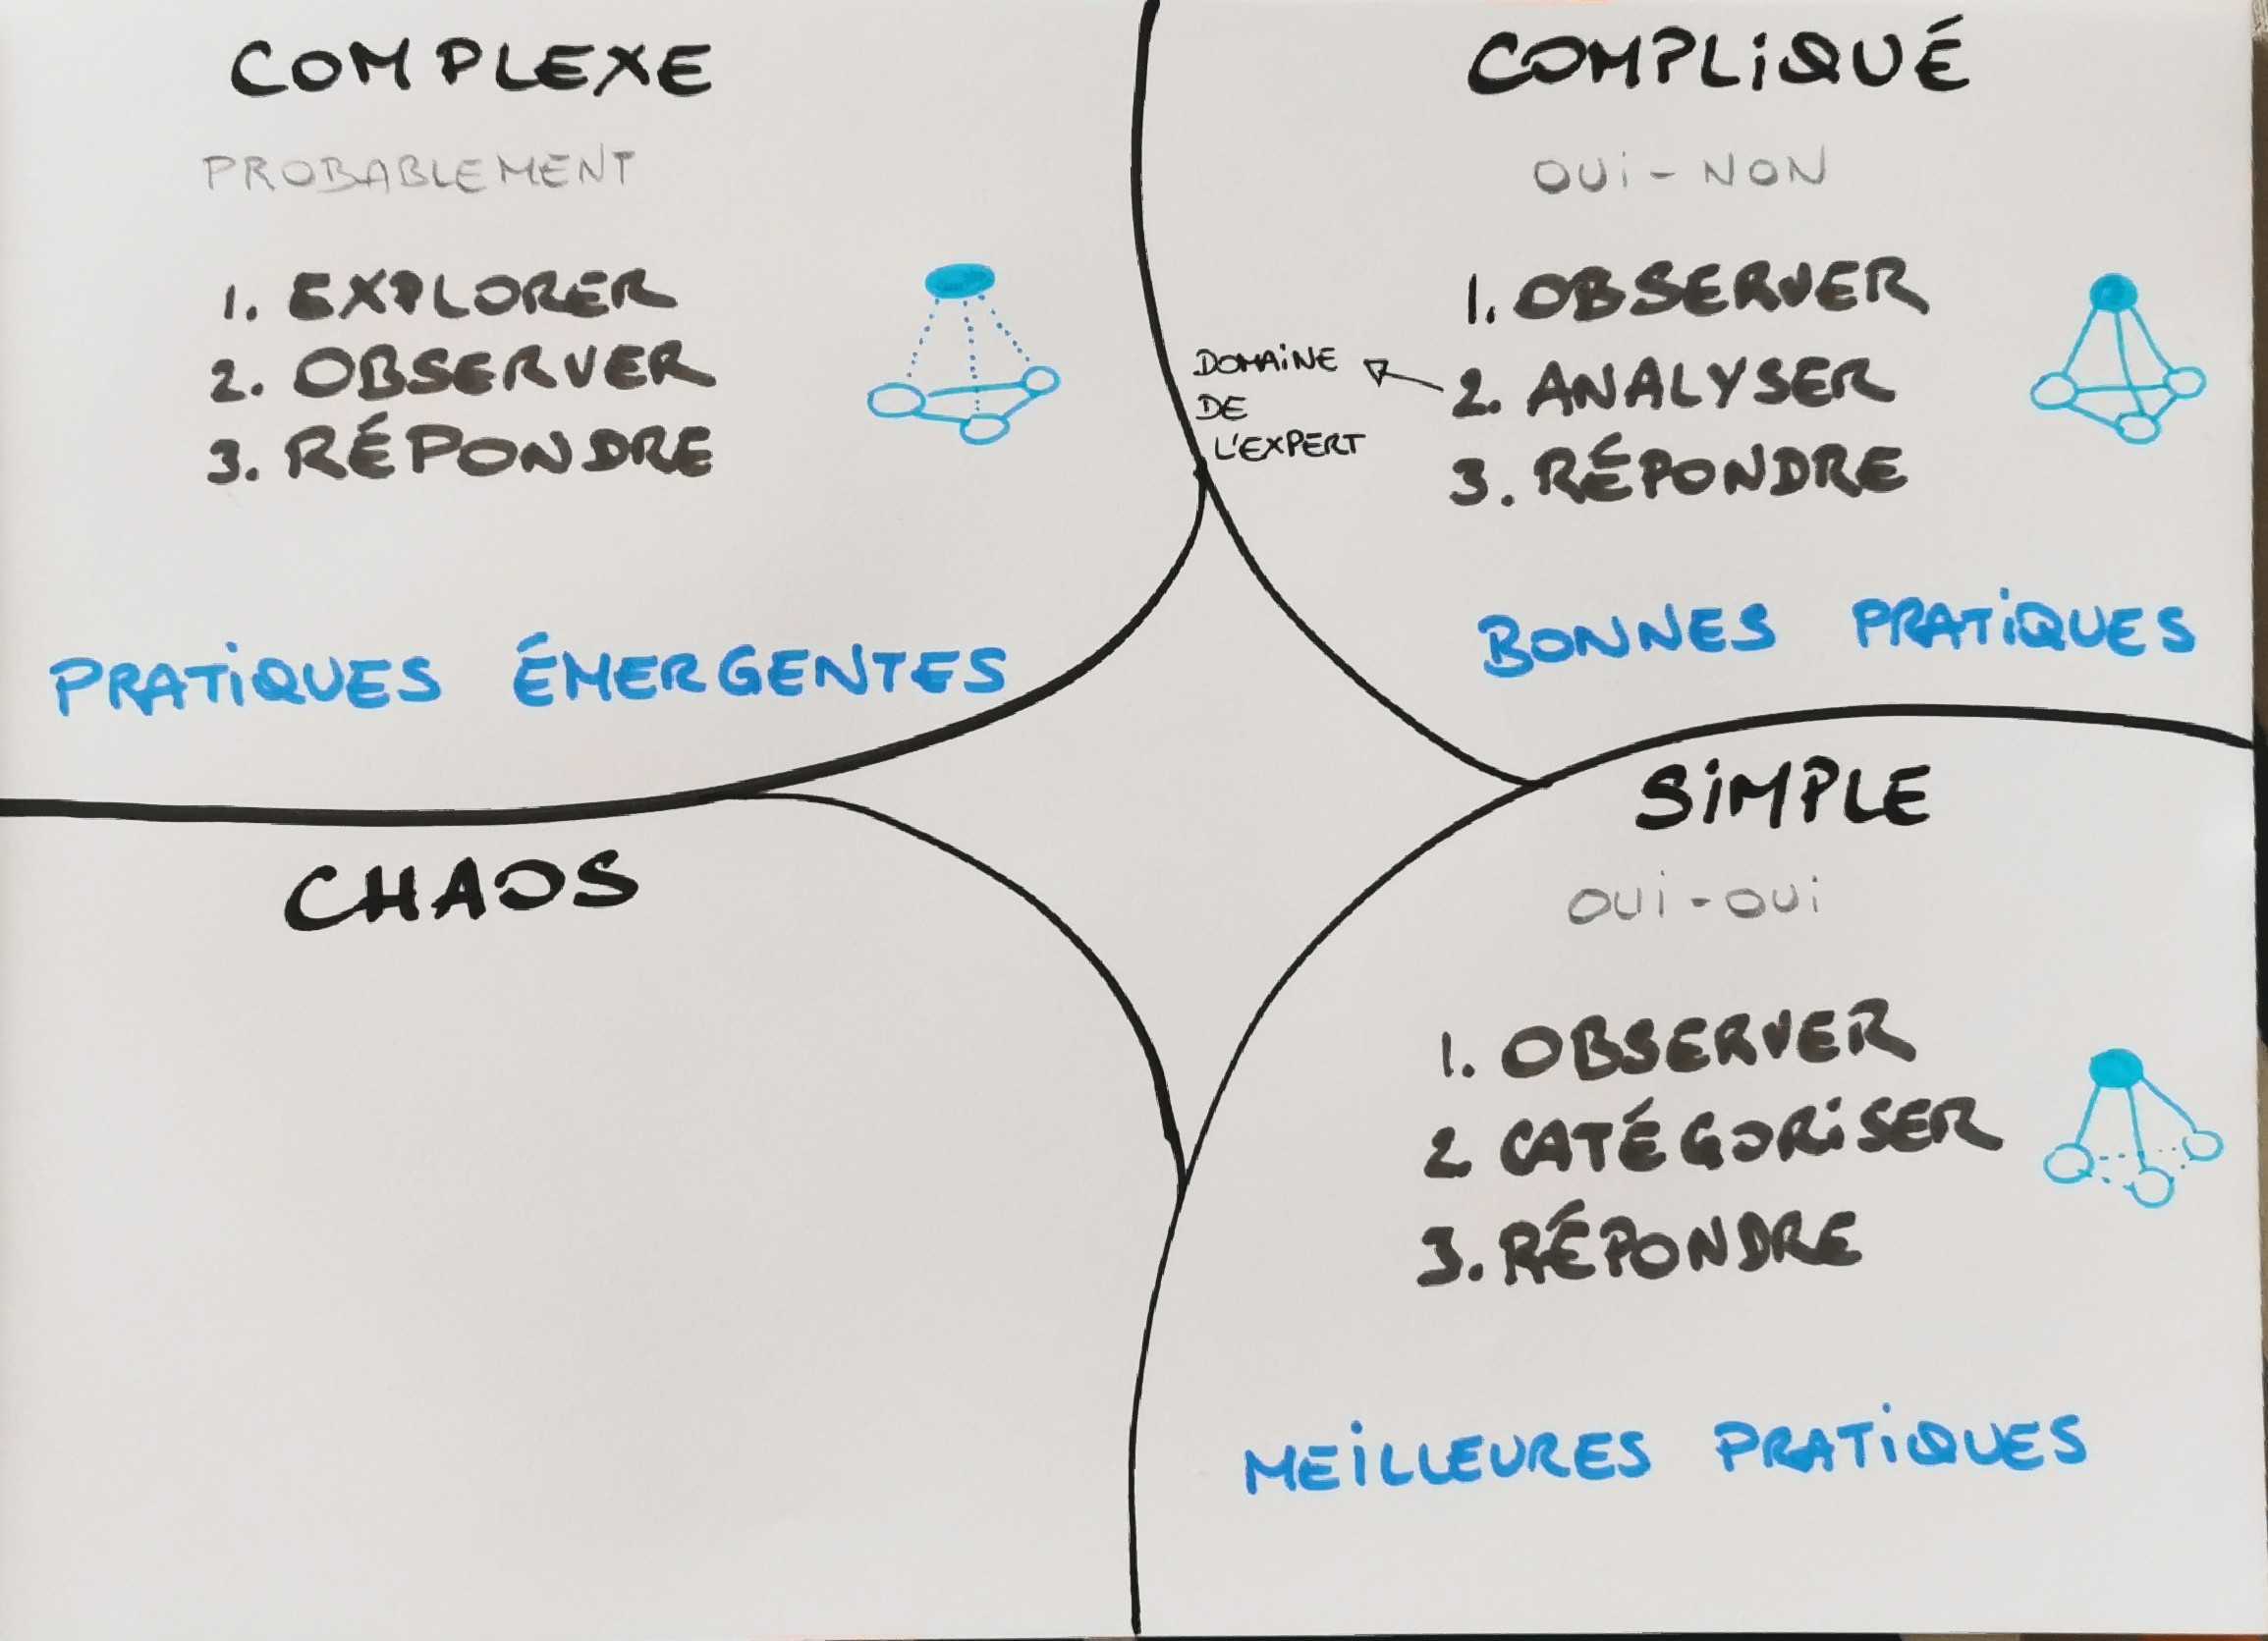 COMPLEXE
PROBABLEMENT
1. EXPLORER
2. OBSERVER
3. RÉPONDRE
PRATiQUES ÉMERGENTES
COMPLiQUÉ
OUi - NON
1. OBSERVER
2. ANALYSER
3. RÉPONDRE
DOMAiNE
DE
L'EXPERT
BONNES PRATiQUES
CHAOS
SiMPLE
OUi - OUi
1. OBSERVER
2 CATÉGORiSER
3. RÉPONDRE
MEiLLEURES PRATiQUES